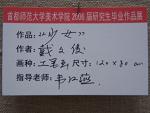 首都师范大学美术学院2006届研究生毕业作品展
作品:《少女》
作者:戴文俊
画种:工笔画 尺寸:120×80cm
指导老师:韦红燕